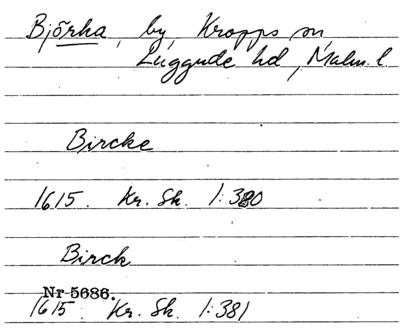 Björka, by, Kropps sn,
Luggude hd, Malm. l.
Bircke
1615. Kr. Sk. 1:380
Birck
Nr 5686.
1615. Kr. Sk. 1:381